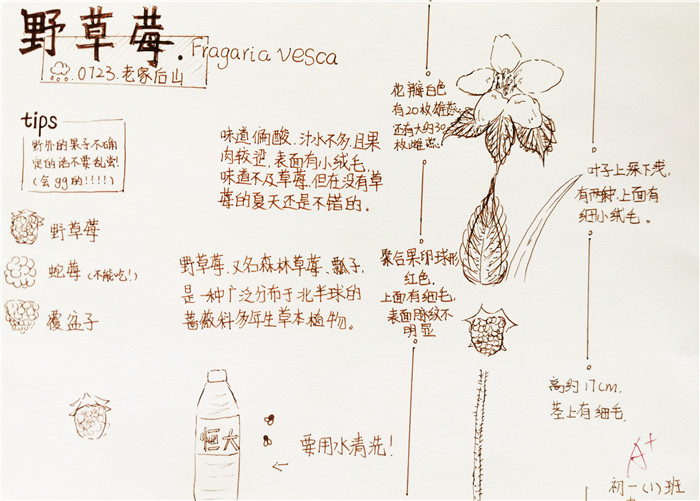 野草莓. Fragaria vesca
0723.老家后山
tips
野外的果子不确
定的话不要乱吃!
(会gg的!!!!)
野草莓
蛇莓(不能吃!)
覆盆子
味道偏酸、汁水不多,且果
肉较逊,表面有小绒毛,
味道不及草莓,但在没有草
莓的夏天还是不错的。
野草莓,又名森林草莓、瓢子,
是一种广泛分布于北半球的
蔷薇科多年生草本植物。
恒大
要用水清洗!
花瓣白色
有20枚雄蕊
还有大约30
枚雌蕊。
聚合果卵球形
红色,
上面有细毛,
表面脉纹不
明显
叶子上深下浅,
有两种,上面有
细小绒毛。
高约17cm,
茎上有细毛,
A+
初一(1)班